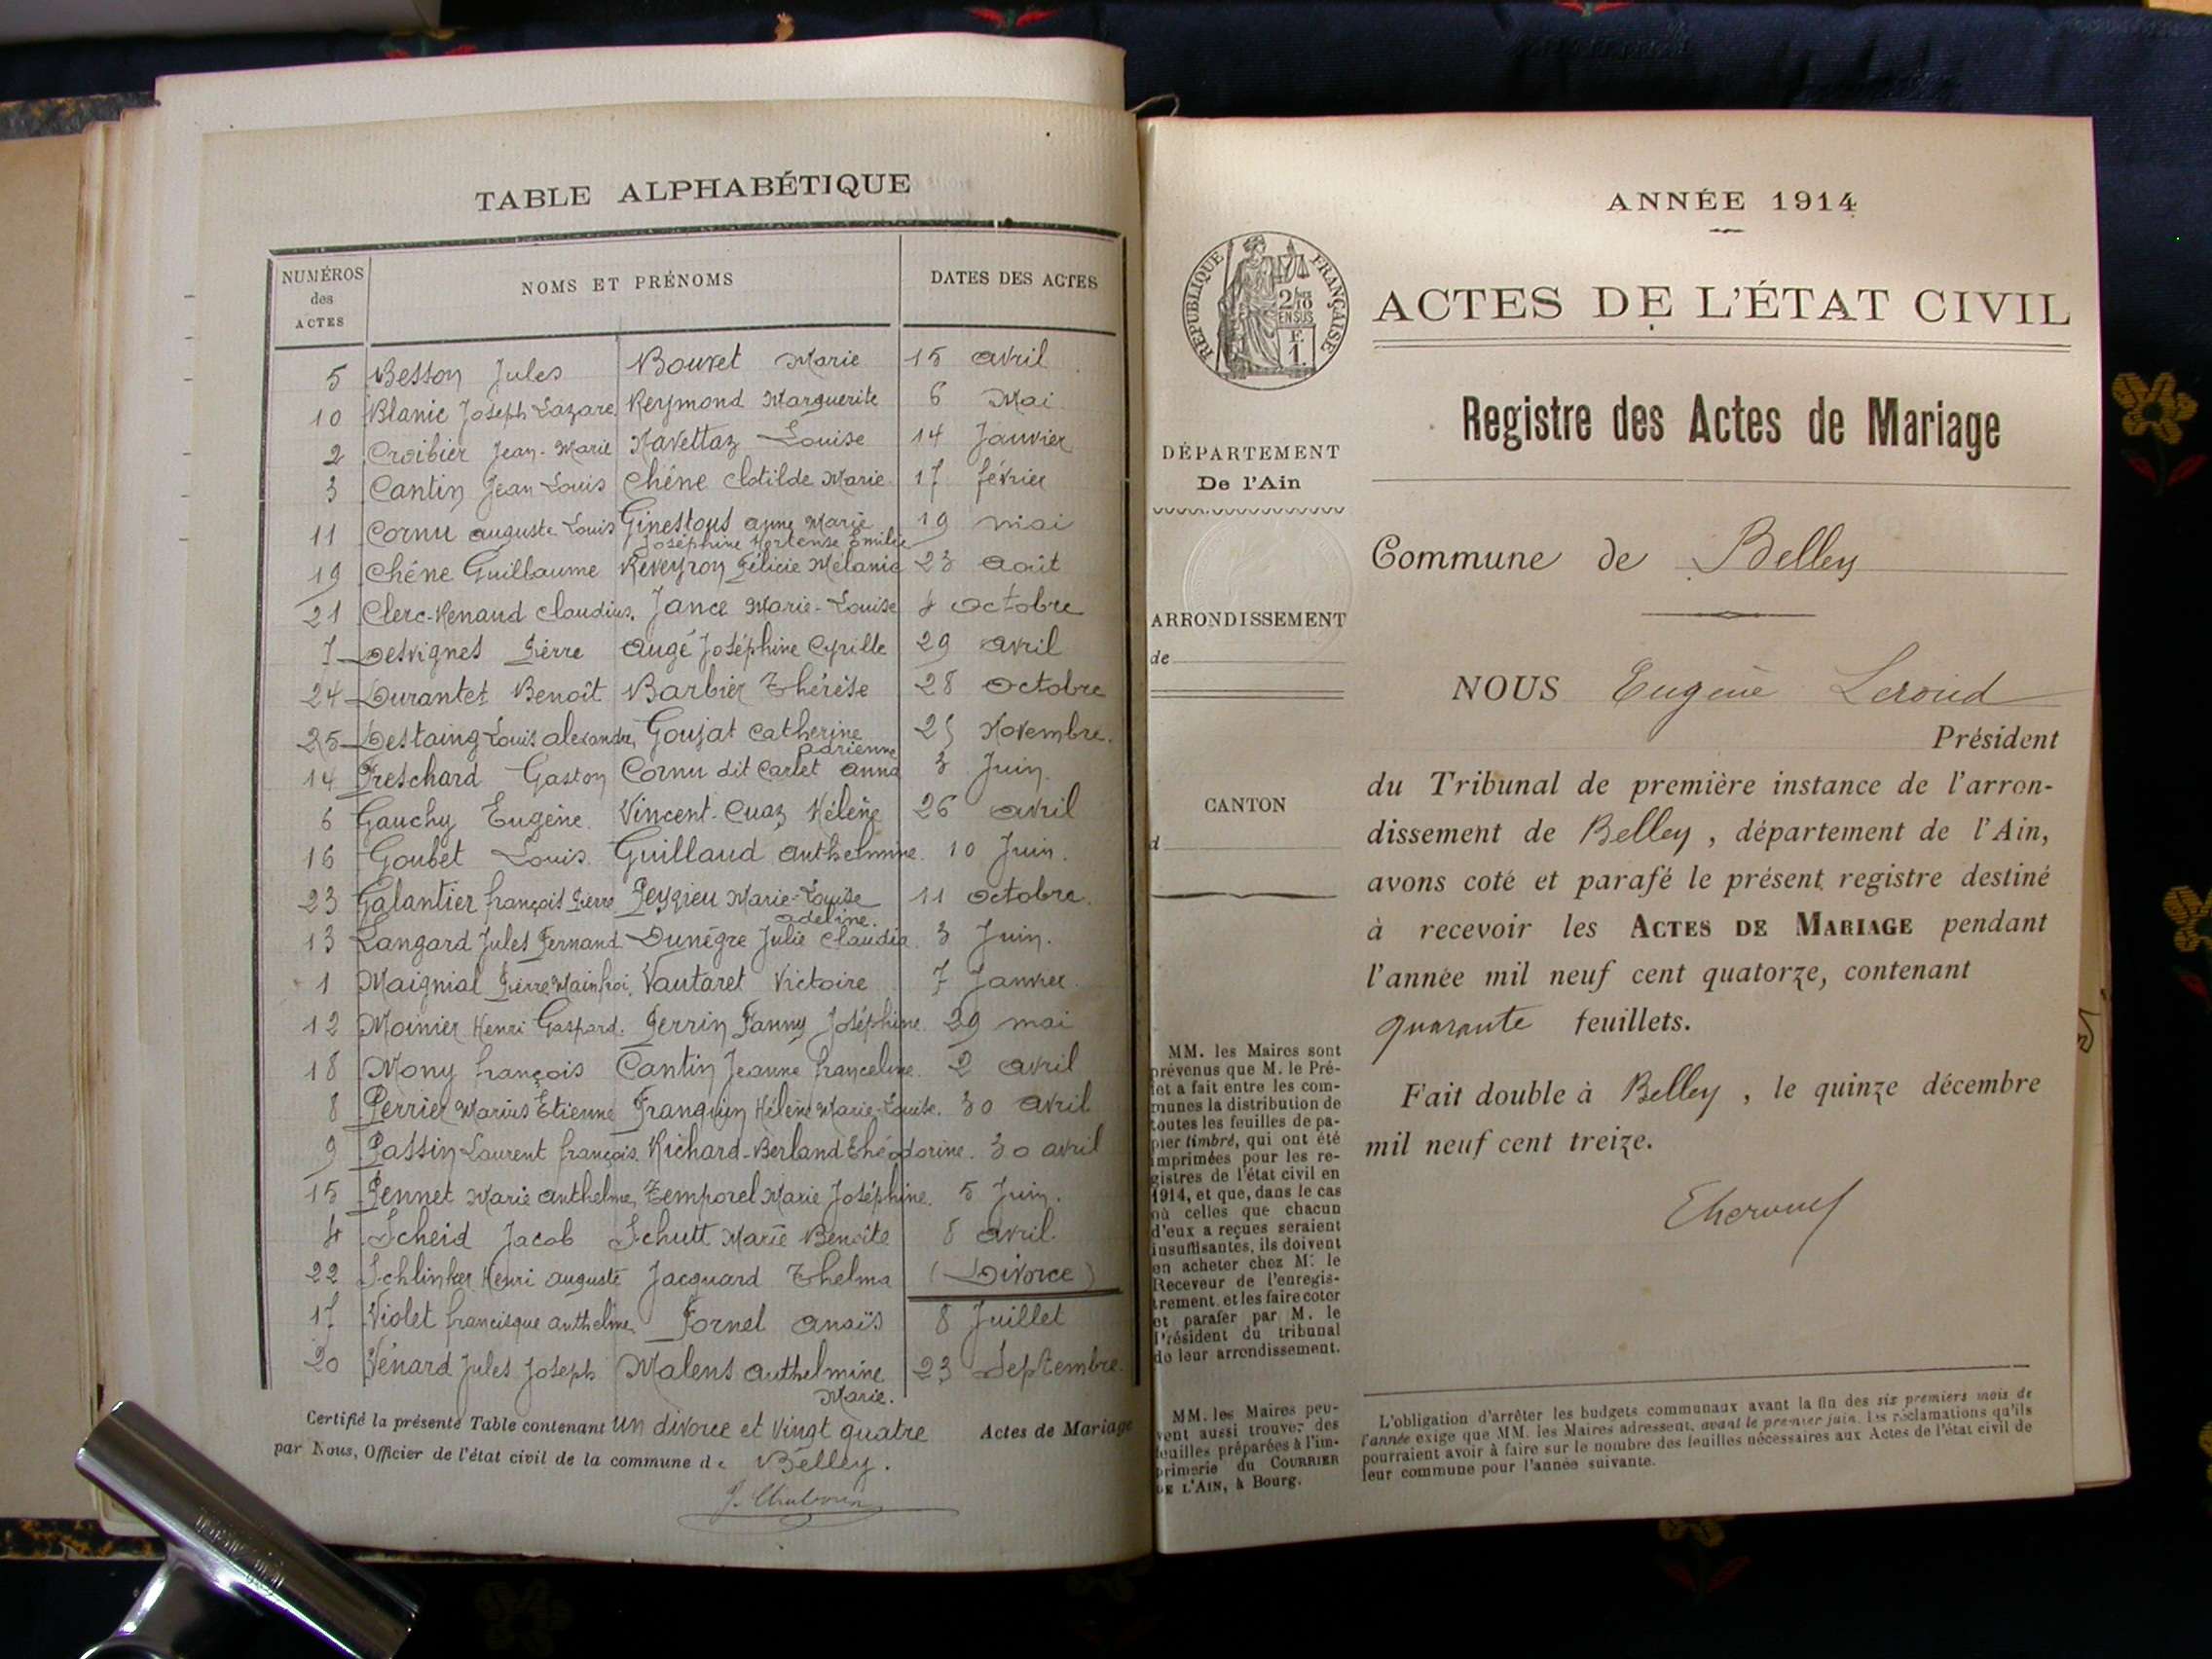 TABLE ALPHABÉTIQUE
NUMÉROS des ACTES NOMS ET PRÉNOMS DATES DES ACTES
5 Besson Jules Bouvet Marie 15 avril
10 Blanic Joseph Lazare Reymond Marguerite 6 Mai
2 Croibier Jean-Marie Navettaz Louise 14 Janvier
3 Cantin Jean Louis Chêne Clotilde Marie 17 février
11 Cornu auguste Louis Ginestous anne Marie 19 mai
Joséphine Hortense Emilie
19 Chêne Guillaume Reveyron Félicie Mélanie 23 Août
21 Clerc-Renaud Claudius. Jance Marie-Louise 8 Octobre
7 Desvignes Pierre Augé Joséphine Cyrille 29 avril
24 Durantet Benoît Barbier Thérèse 28 Octobre
25 Destaing Louis alexandre, Goujat Catherine 25 Novembre.
adrienne
14 Freschard Gaston Cornu dit Carlet anna 3 Juin.
6 Gauchy Eugène. Vincent-Cuaz Hélène 26 avril
16 Goubet Louis. Guillaud anthelmine. 10 Juin.
23 Galantier françois Pierre Peysieu Marie-Louise 11 Octobre.
adeline.
13 Langard Jules Fernand. Dunègre Julie Claudia. 3 Juin.
1 Maignial Pierre Mainfroi. Vautaret Victoire 7 Janvier.
12 Moinier Henri Gaspard. Perrin Fanny Joséphine. 29 mai
18 Mony françois Cantin Jeanne franceline. 2 avril
8 Perrier Marius Etienne Franquin Hélène Marie-Louise. 30 avril
9 Passin Laurent françois. Richard-Berland Théodorine. 30 avril
15 Pennet Marie anthelme, Temporel Marie Joséphine. 5 Juin.
4 Scheid Jacob Schutt Marie Benoîte 8 avril.
22 Schlinker Henri auguste Jacquard Thelma (Divorce)
17 Violet francisque anthelme, Fornel anaïs 8 Juillet
20 Vénard Jules Joseph Malens authelmine 23 Septembre.
Marie.
Certifié la présente Table contenant un divorce et vingt quatre Actes de Mariage
par Nous, Officier de l'état civil de la commune de Belley.
ANNÉE 1914
RÉPUBLIQUE FRANÇAISE
2/10 EN SUS
F. 1.
ACTES DE L'ÉTAT CIVIL
Registre des Actes de Mariage
DÉPARTEMENT
De l'Ain
Commune de Belley
ARRONDISSEMENT
de
NOUS Eugène Leroud
Président
du Tribunal de première instance de l'arron-
dissement de Belley, département de l'Ain,
avons coté et parafé le présent registre destiné
à recevoir les ACTES DE MARIAGE pendant
l'année mil neuf cent quatorze, contenant
quarante feuillets.
Fait double à Belley, le quinze décembre
mil neuf cent treize.
CANTON
d
MM. les Maires sont
prévenus que M. le Pré-
fet a fait entre les com-
munes la distribution de
toutes les feuilles de pa-
pier timbré, qui ont été
imprimées pour les re-
gistres de l'état civil en
1914, et que, dans le cas
où celles que chacun
d'eux a reçues seraient
insuffisantes, ils doivent
en acheter chez M. le
Receveur de l'enregis-
trement, et les faire coter
et parafer par M. le
Président du tribunal
de leur arrondissement.
MM. les Maires peu-
vent aussi trouver des
feuilles préparées à l'im-
primerie du COURRIER
DE L'AIN, à Bourg.
L'obligation d'arrêter les budgets communaux avant la fin des six premiers mois de
l'année exige que MM. les Maires adressent, avant le premier juin, les réclamations qu'ils
pourraient avoir à faire sur le nombre des feuilles nécessaires aux Actes de l'état civil de
leur commune pour l'année suivante.